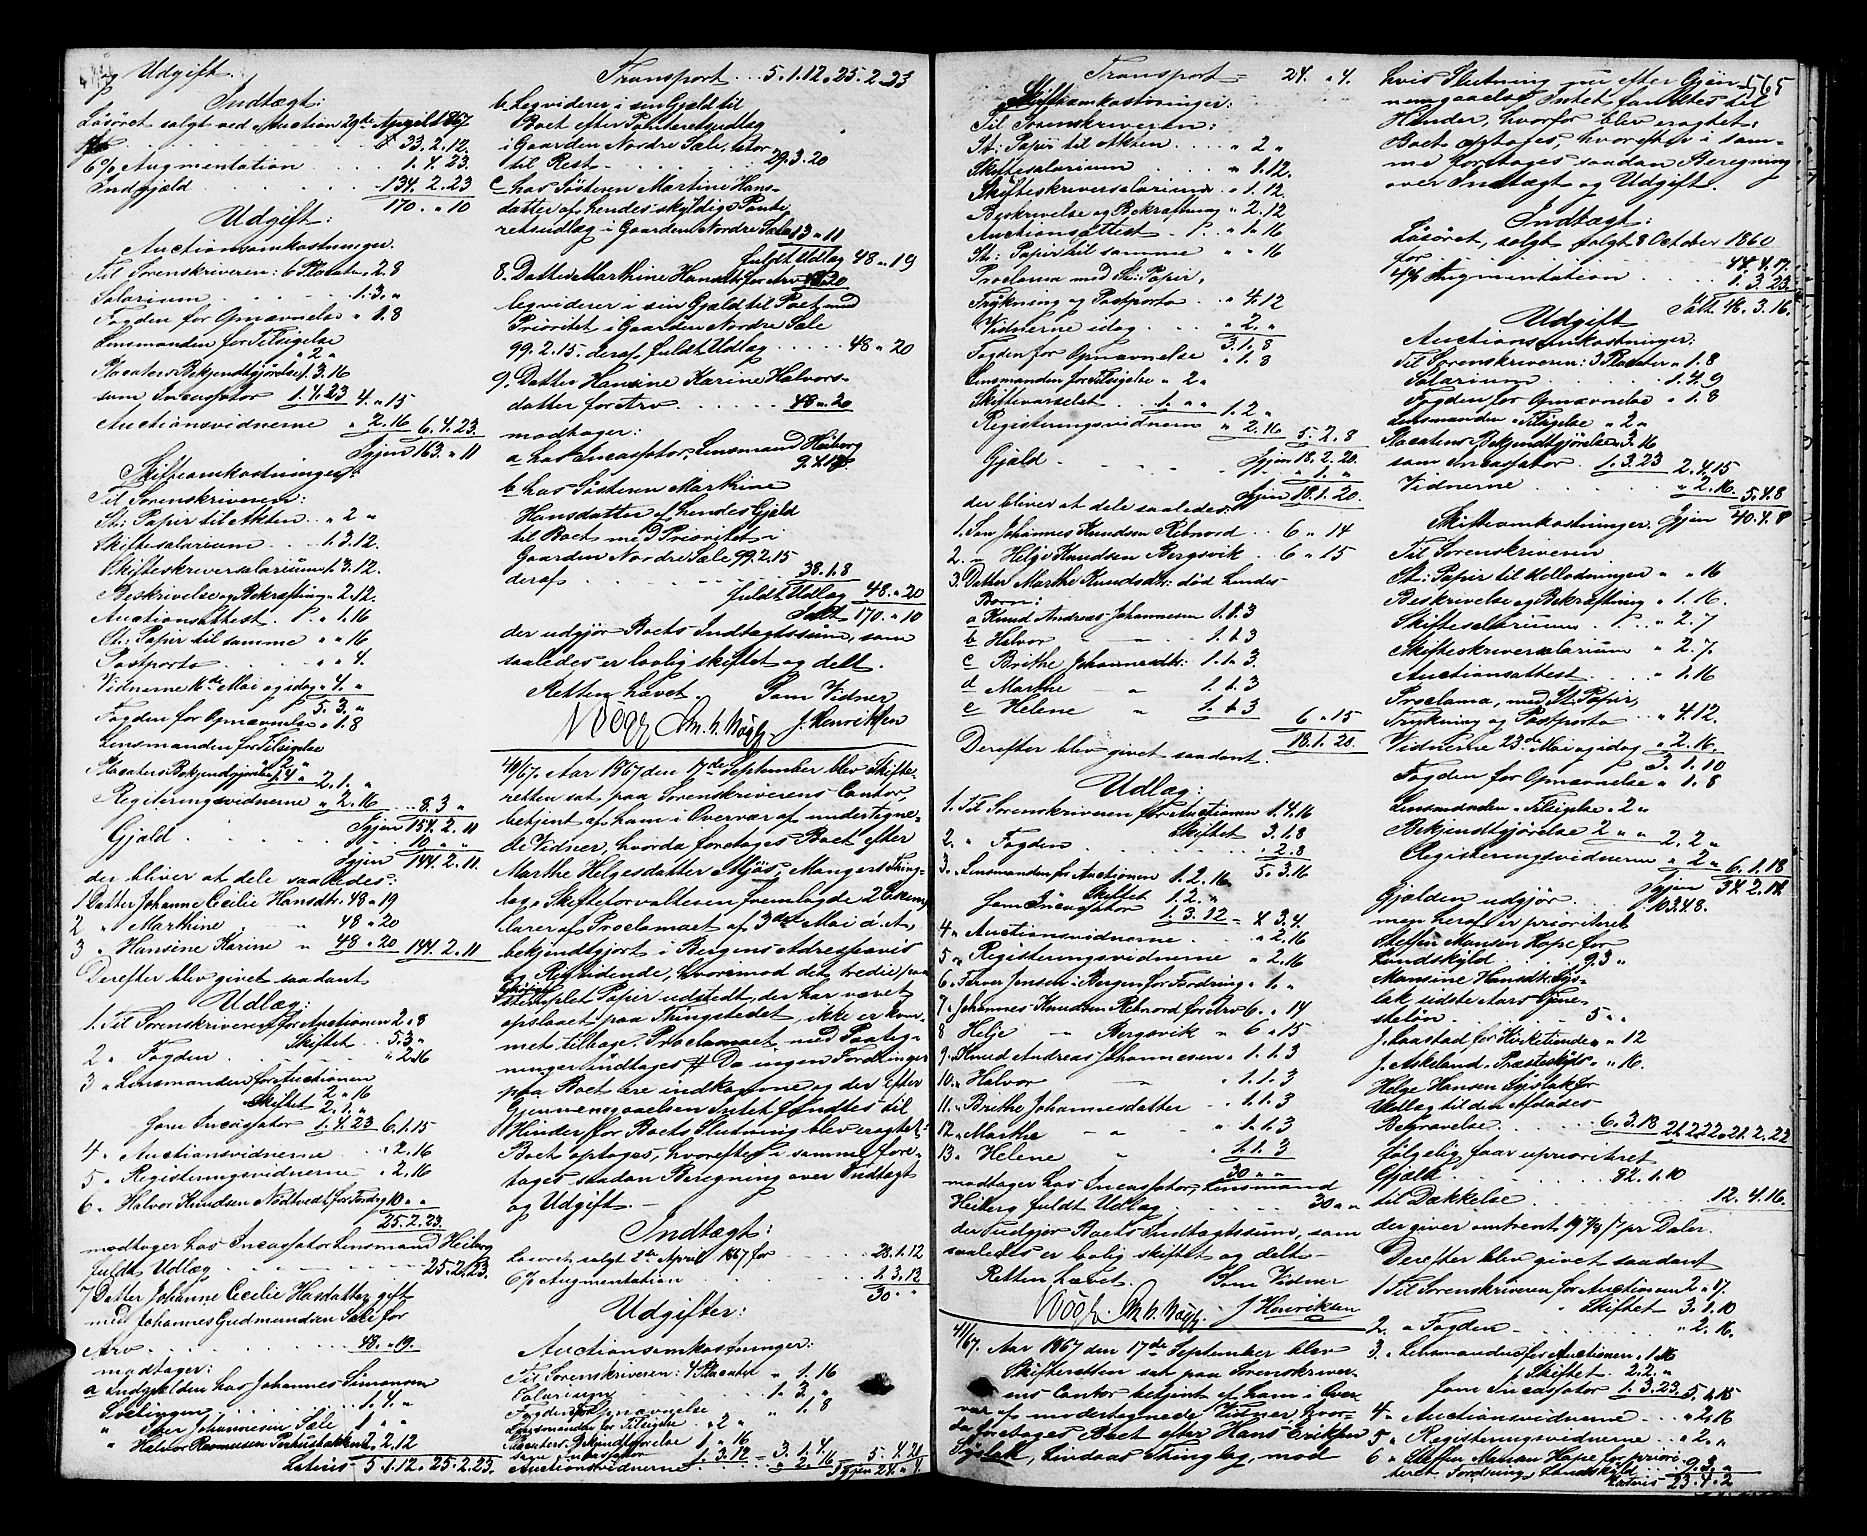 og Udgift.
Indtægt:
Løsøret solgt ved Auction 29de April 1867
for . . . 33.2.12.
6% Augmentation 1.4.23.
Indgjæld . . . 134.2.23
170. " 10
Udgift:
Auctionsomkostninger.
Til Sorenskriveren: 6 Placater " 2.8
Salarium . . . 1.3. "
Fogden for Opnævnelse " 1.8
Lensmanden for Tilsigelse
" 2 "
Placaters Bekjendtgjørelse 1.3.16
som Incassator 1.4.23 4. " 15
Auctionsvidnerne " 2.16 6.4.23.
Igjen 163. " 11
Skifteomkostninger:
Til Sorenskriveren:
St: Papir til Akten . . " 2 "
Skiftesalarium . . . 1.3.12.
Skifteskriversalarium 1.3.12.
Beskrivelse og Bekræftning " 2.12.
Auctionsattest . " 1.16
St: Papir til samme " " 16
Postporto . . . " " 4.
Vidnerne 16de Mai og idag " 4. "
5.3. "
Fogden for Opnævnelse " 1.8
Lensmanden for Tilsigelse
" 2 "
Placaters Bekjendtgjørelse 1.4 " 2.1. "
Registeringsvidnerne " 2.16 8.3 "
Igjen 154.2.11
Gjæld . . . 10 " "
Igjen 144.2.11.
der bliver at dele saaledes:
1 Datter Johanne Cecilie Hansdtr. 48 " 19
2 " Marthine . . " 48 " 20
3 " Hansine Karine " 48 " 20 144.2.11
Derefter blev givet saadant
Udlæg:
1. Til Sorenskriveren for Auctionen 2. " 8
Skiftet . 5.3 "
2 " Fogden . . . " 2.16
3 " Lensmanden for Auctionen
" 2 " 16
Skiftet 2.1. "
som Incassator 1.4.23 6.1.15
4 " Auctionsvidnerne . . . " 2.16
5 " Registeringsvidnerne . " 2.16
6 " Halvor Knudsen Nodtvedt, for Fordrg 10 " "
25.2.23.
modtager hos Incassator Lensmand Heiberg
fuldt Udlæg . . . 25.2.23.
7 Datter Johanne Cecilie Hansdatter gift
med Johannes Gudmundsen Sale for
Arv . . . 48. " 19.
modtager:
a Indgjælden hos Johannes Simonsen
1.4. "
" Iver Johannesen Sale 1 " "
" Halvor Rasmussen 2.2.12
Lateris 5.1.12. " 25.2.23.
Transport . . . 5.1.12. " 25.2.23
b Leqviderer i sin Gjæld til
Boet efter Panteretsudlæg
i Gaarden Nordre Sale,
til Rest . . . 29.3.20
c hos Søsteren Martine Hans-
datter af hendes skyldige Pante
retsudlæg i Gaarden Nordre Sale 13 " 11
fuldt Udlæg 48 " 19
8. Datter Marthine Hansdtr for Arv 48 " 20
leqviderer i sin Gjæld til Boet med
Prioritet i Gaarden Nordre Sale
99.2.15. deraf fuldt Udlæg . . . 48 " 20
9. Datter Hansine Karine Halvors-
datter for Arv . . . 48 " 20
modtager:
a hos Incassator, Lensmand Heiberg
b hos Søsteren Marthine
Hansdatter af hendes Gjæld
til Boet med Prioritet i
Gaarden Nordre Sale 99.2.15
deraf . . . 38.1.8
fuldt Udlæg 48. " 20
Sdlr 170. " 10
der udgjør Boets Indtægtssum, som
saaledes er lovlig skiftet og delt.
Retten hævet. Som Vidner
J. Henriksen
40/67. Aar 1867 den 17de September blev Skifte-
retten sat paa Sorenskriverens Contor,
betjent af ham i Overvær af undertegne-
de Vidner, hvorda foretages Boet efter
Marthe Helgesdatter Mjøs, Mangers Thing-
lag. Skifteforvalteren fremlagde 2 Exem
larer af Proclamaet af 3die Mai d. A.,
bekjendtgjort i Bergens Adresseavis
og Rigstidende, hvorimod det tredie paa
stemplet Papir udstedt, der har været
opslaaet paa Thingstedet, ikke er kom-
met tilbage. Proclamaet med Paateg-
ninger indtages # Da ingen Fordringer
paa Boet ere indkomne og der efter
Gjennemgaaelsen Intet fandtes til
Hinder for Boets Slutning blev eragtet:
Boet optages, hvorefter i samme fore-
tages saadan Beregning over Indtægt
og Udgift.
Indtægt:
Løsøret solgt 2de April 1867 for . . . 28.1.12
6% Augmentation . . . 1.3.12
30 " "
Udgifter:
Auctionsomkostninger:
Til Sorenskriveren: 4 Placater " 1.16
Salarium . . . 1.3. "
Fogden for Opnævnelse " 1.8
Lensmanden for Tilsigelse " 2 "
Placaters Bekjendtgjørelse 1. " 16
som Incassator 1.3.12 = 3.1.4.
Auctionsvidnerne . . . " 2.16 5.4.20
Igjen 24. " 4.
Transport = 24. " 4.
Skifteomkostninger:
Til Sorenskriveren:
St: Papir til Akten . . . " 2 "
Skiftesalarium . . . " 1.12.
Skifteskriversalarium " 1.12.
Beskrivelse og Bekræftning " 2.12
Auctionsattest " 1.16
St: Papir til samme " " 16
Proclama med St: Papir,
Trykning og Postporto . . " 4.12
Vidnerne idag . . " 2. "
3.1.8
Fogden for Opnævnelse " 1.8
Lensmanden for Tilsigelse " 2 "
Skiftevarselet . . 1. " " 1.2 "
Registeringsvidnerne " 2.16 5.2.8
Igjen 18.2.20.
Gjæld . . . " 1. "
Igjen 18.1.20.
der bliver at dele saaledes:
1. Søn Johannes Knudsen Rebnord . . 6 " 14
2. " Helge Knudsen Bergsvik . . 6 " 15
3. Datter Marthe Knudsdtr: død hendes
Børn:
a Knud Andreas Johannesen 1.1.3
b Halvor — " — 1.1.3
c Brithe Johannesdtr: 1.1.3.
d Marthe — " 1.1.3
e Helene " 1.1.3
6 " 15
18.1.20.
Derefter blev givet saadant
Udlæg:
1. Til Sorenskriveren for Auctionen 1.4.16
Skiftet 3.1.8
2. " Fogden . . . " 2.8
5.3.16
3. " Lensmanden for Auctionen 1.2.16
Skiftet 1.2. "
som Incassator 1.3.12 = 4.3.4.
4 " Auctionsvidnerne . . . " 2.16
5 " Registeringsvidnerne " 2.16
6. " Jensen i Bergen for Fordring " 1. "
7. " Johannes Knudsen Rebnord for Arv 6. " 14
8 " Helje " Bergsvik " 6 " 15
9. " Knud Andreas Johannesen " 1.1.3
10. " Halvor — " — " 1.1.3
11. " Brithe Johannesdatter . " 1.1.3
12. " Marthe " " 1.1.3
13. " Helene " " 1.1.3
30 " "
modtager hos Incassator, Lensmand
Heiberg fuldt Udlæg . . . 30 " "
der udgjør Boets Indtægtssum, som
saaledes er lovlig skiftet og delt.—
Retten hævet. Som Vidner
J Henriksen
41/67. Aar 1867 den 17de September blev
Skifteretten sat paa Sorenskriver-
ens Contor betjent af ham i Over-
vær af undertegnede Vidner, hvor-
da foretages Boet efter Hans Eriksen
Syslak, Lindaas Thinglag, med
565
hvis Slutning nu efter Gjen-
nemgaaelse Intet fandtes til
Hinder, hvorfor blev eragtet:
Boet optages, hvorefter i sam-
me foretages saadan Beregning
over Indtægt og Udgift.
Indtægt:
Løsøret, solgt 8 October 1860
for . . . 44.4.17.
4% Augmentation . . . 1.3.23.
Sdlr 46.3.16.
Udgift
Auctionsomkostninger:
Til Sorenskriveren: 3 Placater " 1.8
Salarium . . . 1.4.9
Fogden for Opnævnelse " 1.8
Lensmanden " Tilsigelse " 2 "
Placatens Bekjendtgjørelse " 3.16
som Incassator . 1.3.23 2.4.15
Vidnerne . . . " 2.16. 5.4.8
Igjen 40.4.8
Skifteomkostninger.
Til Sorenskriveren
St: Papir til Udlodningen " " 16
Beskrivelse og Bekræftning " 1.16.
Skiftesalarium . " 2.7
Skifteskriversalarium " 2.7.
Auctionsattest . . " 1.16
Proclama, med St. Papir,
Trykning og Postporto . . " 4.12.
Vidnerne 23de Mai og idag " 2.16.
3.1.10
Fogden for Opnævnelse " 1.8
Lensmanden " Tilsigelse " 2 "
Bekjendtgjørelse 2 " " 2.2 "
Registeringsvidnerne " 2 " 6.1.18
Igjen 34.2.14
Gjælden udgjør . . 103.4.8.
men heraf er prioriteret
Steffen Hansen Hope for
Landskyld . . . 9.3 "
Mansine Hansdtr. Sys-
lak, sidste Aars Tjene-
steløn . . . 5 " "
J. Laastad for Kirketiende " " 12
J. Askeland " Præsteskyds " " 16.
Helge Hansen Syslak for
Udlæg til den Afdødes
Begravelse . . . 6.3.18 21.2.22 " 21.2.22
følgelig faar uprioriteret
Gjæld . . . 82.1.10
til Dækkelse . . . 12.4.16.
der giver omtrent pr Daler.
Derefter blev givet saadant
1 Til Sorenskriveren for Auctionen 2. " 17.
" Skiftet 3.1.10
2. " Fogden . . . " 2.16.
3. " Lensmanden for Auctionen 1. " 16
" Skiftet . 2.2. "
som Incassator . 1.3.23 5. " 15
4. " Auctionsvidnerne . . . " 2.16
5 " Registeringsvidnerne . . . " 2. "
6 " Steffen Hansen Hope for priori
teret Fordring, Landskyld . . 9.3. "
Lateris 23.4.2